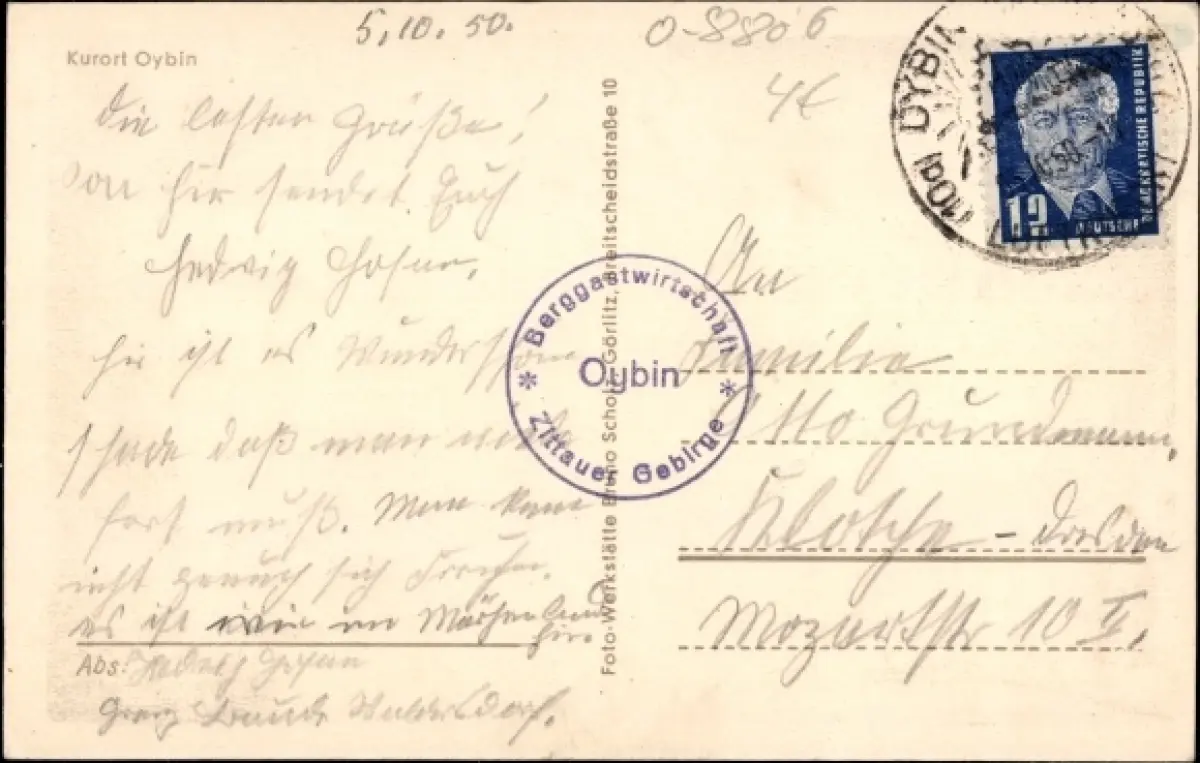 5.10.50.
0-8806
4€
Kurort Oybin
Die besten Grüße!
von hir sendet Euch
Hedwig
hir ist es Wunderschön
schade daß man wieder
fort muß. Man kann
nicht genuch sich
es ist wie im Märchenland
hir.
Abs:
Foto-Werkstätte Bruno Scholz, Görlitz, Breitscheidstraße 10
Berggastwirtschaft
Oybin
Zittauer Gebirge
OYBIN
(10a)
12
DEUTSCHE
DEMOKRATISCHE REPUBLIK
An
Familie
Otto Grundmann,
Klotsche - Dresden
Mozartstr 10 II.